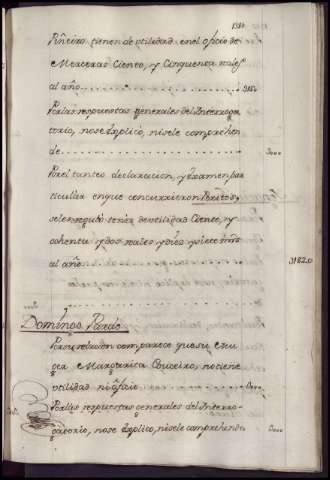 Piñeiro tienen de utilidad en el oficio de
Merceras Ciento, y Cinquenta rales
al año
Por las respuestas generales del Interroga
torio, nose explicò, nisele comprehen
de
Por el tanteo declaracion, y examen par
ticular en que concurrieron Peritos,
sele reguló tener de utilidad Ciento, y
ochenta y dos reales y diez y siete mrs
al año
Domingo Pardo
Por su relacion comparece que su mu
ger Margarita Couceiro, no tiene
utilidad ni oficio
Por las respuestas generales del Interro
gatorio, nose explicò, nisele comprehende